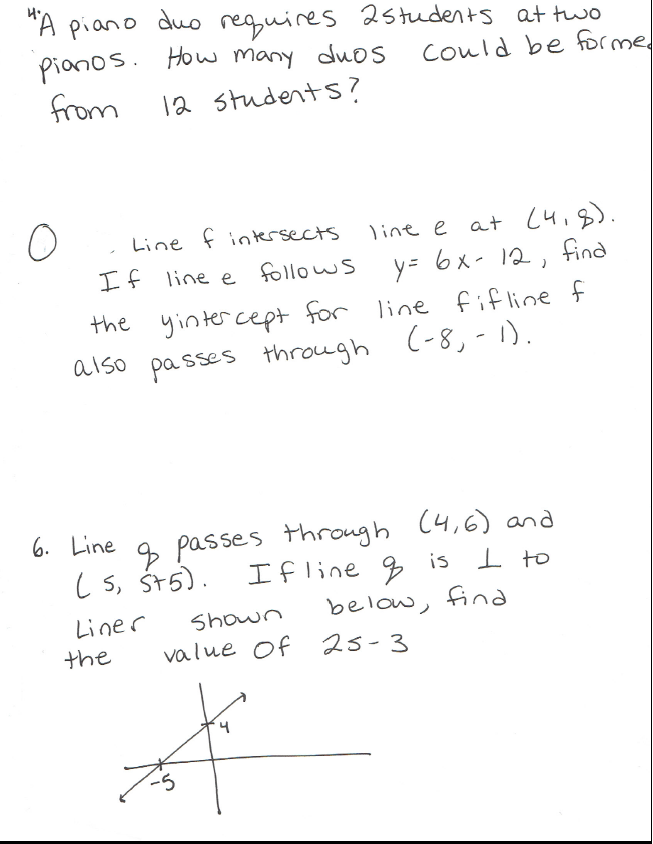 4. A piano duo requires 2 students at two
pianos. How many duos could be forme
from 12 students?
Line f intersects line e at (4,8).
If line e follows y= 6x- 12, find
the yintercept for line f if line f
also passes through (-8, -1).
6. Line q passes through (4,6) and
(s, s+5). If line q is ⊥ to
Line r shown below, find
the value of 2s-3
4
-5